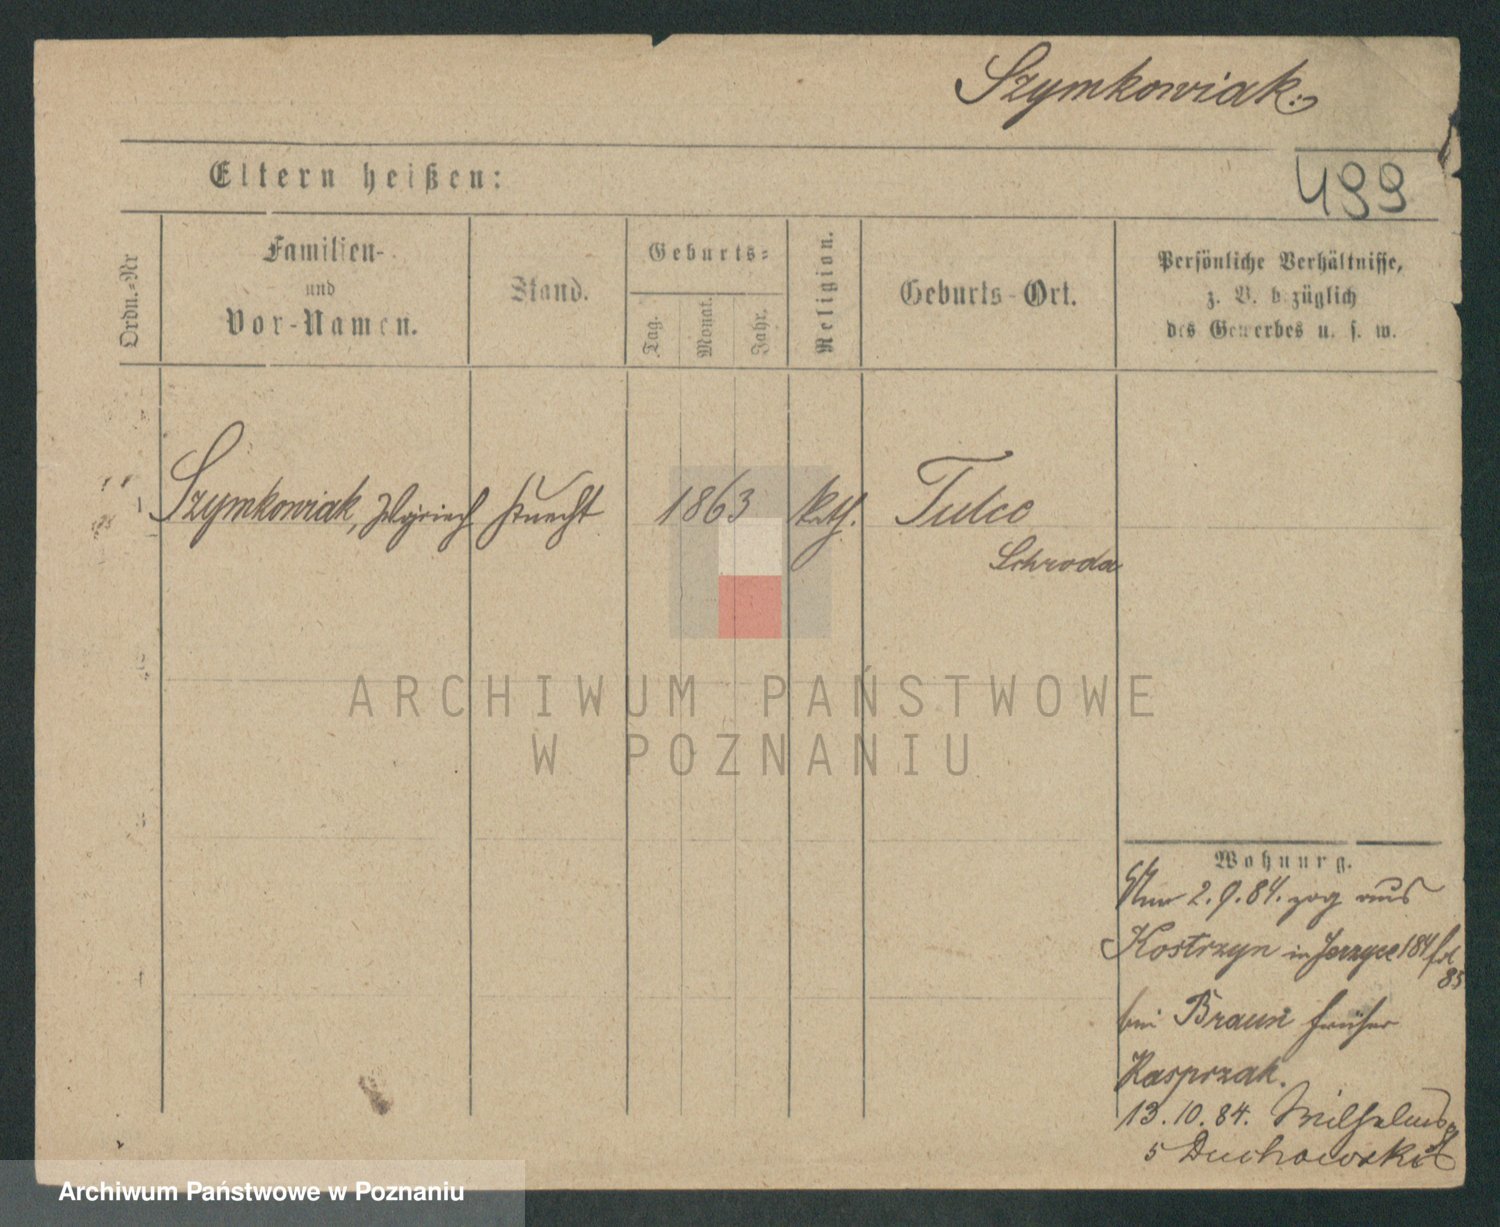 Szymkowiak
499
Eltern heißen:
Ordn.-Nr
Familien-
und
Vor-Namen.
Stand.
Geburts-
Tag.
Monat.
Jahr.
Religion.
Geburts-Ort.
Persönliche Verhältnisse,
z. B. bezüglich
des Gewerbes u. s. w.
Szymkowiak, Knecht 1863 kath. Tulce
Schroda
ARCHIWUM PAŃSTWOWE
W POZNANIU
Wohnung.
2.9.84. zog aus
Kostrzyn in Jerzyce 184
85
bei Braun früher
Kasprzak.
13.10.84. Wilhelms
5 Duchowski
Archiwum Państwowe w Poznaniu